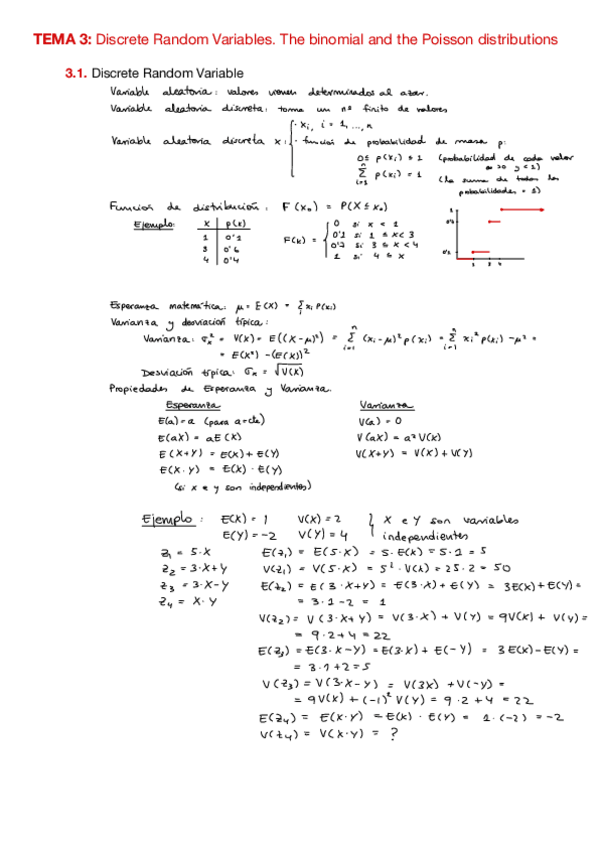 TEMA 3: Discrete Random Variables. The binomial and the Poisson distributions
3.1. Discrete Random Variable
Variable aleatoria: valores vienen determinados al azar.
Variable aleatoria discreta: toma un nº finito de valores
Variable aleatoria discreta x: { · xi, i = 1, ..., n
· función de probabilidad de masa p:
0 ≤ p(xi) ≤ 1 (probabilidad de cada valor
es >0 y <1)
n Σ i=1 p(xi) = 1 (la suma de todas las
probabilidades = 1)
Función de distribución: F(x₀) = P(X ≤ x₀)
Ejemplo: x p(x)
1 0'1
3 0'6
4 0'4
F(x) = { 0 si x < 1
0'1 si 1 ≤ x < 3
0'7 si 3 ≤ x < 4
1 si 4 ≤ x
1
0'1
1 3 4
Esperanza matemática: μ = E(X) = Σ xi p(xi)
Varianza y desviación típica:
Varianza: σx² = V(X) = E((X-μ)²) = n Σ i=1 (xi-μ)² p(xi) = n Σ i=1 xi² p(xi) - μ² =
= E(X²) - (E(X))²
Desviación típica: σx = √V(X)
Propiedades de Esperanza y Varianza.
Esperanza Varianza
E(a) = a (para a=cte) V(a) = 0
E(aX) = aE(X) V(aX) = a² V(X)
E(X+Y) = E(X) + E(Y) V(X+Y) = V(X) + V(Y)
E(X·Y) = E(X) · E(Y)
(si x e y son independientes)
Ejemplo: E(X) = 1 V(X) = 2 } X e Y son variables
E(Y) = -2 V(Y) = 4 independientes
Z₁ = 5·X E(Z₁) = E(5·X) = 5·E(X) = 5·1 = 5
Z₂ = 3·X+Y V(Z₁) = V(5·X) = 5²·V(X) = 25·2 = 50
Z₃ = 3·X-Y E(Z₂) = E(3·X+Y) = E(3·X) + E(Y) = 3E(X)+E(Y) =
Z₄ = X·Y = 3·1-2 = 1
V(Z₂) = V(3·X+Y) = V(3·X) + V(Y) = 9V(X) + V(Y) =
= 9·2+4 = 22
E(Z₃) = E(3·X-Y) = E(3·X) + E(-Y) = 3E(X)-E(Y) =
= 3·1+2 = 5
V(Z₃) = V(3·X-Y) = V(3X) + V(-Y) =
= 9V(X) + (-1)² V(Y) = 9·2+4 = 22
E(Z₄) = E(X·Y) = E(X) · E(Y) = 1·(-2) = -2
V(Z₄) = V(X·Y) = ?